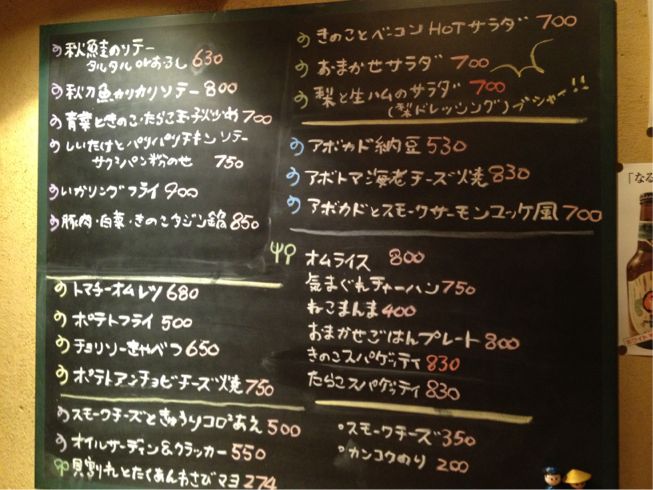 秋鮭のソテー
タルタル orおろし 630
秋刀魚カリカリソテー 800
青菜ときのこ・たらこ玉子炒め 700
しいたけとパリパリチキンソテー
サクうまパン粉のせ 750
いかリングフライ 900
豚肉・白菜・きのこタジン鍋 850
トマチーオムレツ 680
ポテトフライ 500
チョリソーキャベツ 650
ポテトアンチョビチーズ焼 750
スモークチーズときゅうりコロコロあえ 500
オイルサーディン&クラッカー 550
貝割れとたくあんわさびマヨ 274
きのことベーコンHOTサラダ 700
おまかせサラダ 700
梨と生ハムのサラダ 700
(梨ドレッシング)ブシャー!!
アボカド納豆 530
アボトマ海老チーズ焼 830
アボカドとスモークサーモンユッケ風 700
オムライス 800
気まぐれチャーハン 750
ねこまんま 400
おまかせごはんプレート 800
きのこスパゲッティ 830
たらこスパゲッティ 830
スモークチーズ 350
カンコクのり 200
「なる